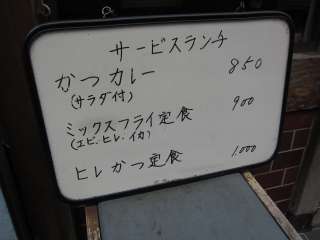 サービスランチ
かつカレー 850
(サラダ付)
ミックスフライ定食 900
(エビ、ヒレ、イカ)
ヒレかつ定食 1,000